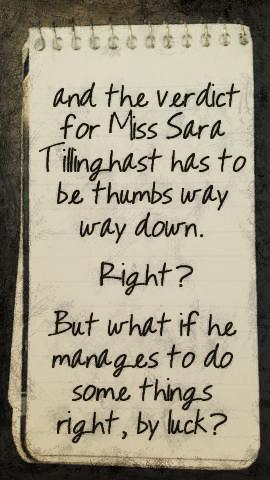 and the verdict
for Miss Sara
Tillinghast has to
be thumbs way
way down.
Right?
But what if he
manages to do
some things
right, by luck?